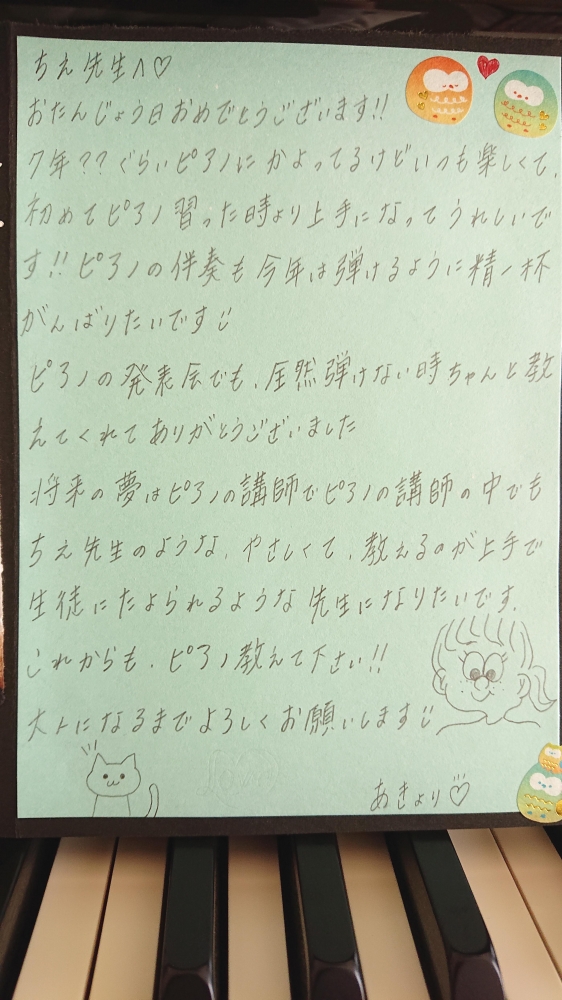 ちえ先生へ♡
おたんじょう日おめでとうございます!!
7年??ぐらいピアノにかよってるけどいつも楽しくて、
初めてピアノ習った時より上手になってうれしいで
す!!ピアノの伴奏も今年は弾けるように精一杯
がんばりたいです
ピアノの発表会でも、全然弾けない時ちゃんと教
えてくれてありがとうございました
将来の夢はピアノの講師でピアノの講師の中でも
ちえ先生のような、やさしくて、教えるのが上手で
生徒にたよられるような先生になりたいです。
これからも、ピアノ教えて下さい!!
大人になるまでよろしくお願いします
あきより♡